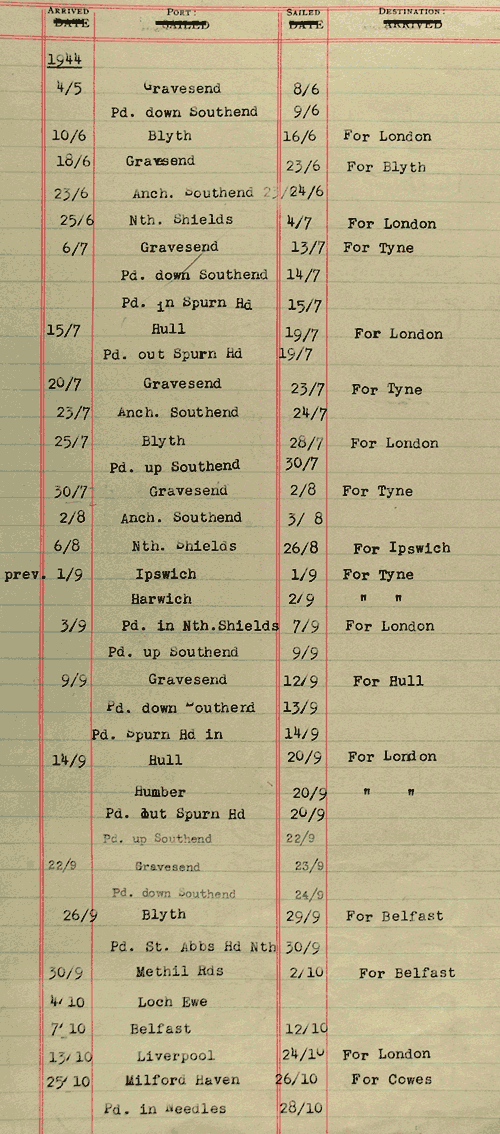 ARRIVED DATE PORT: SAILED SAILED DATE DESTINATION: ARRIVED
1944
4/5 Gravesend 8/6
Pd. down Southend 9/6
10/6 Blyth 16/6 For London
18/6 Gravesend 23/6 For Blyth
23/6 Anch. Southend 23/24/6
25/6 Nth. Shields 4/7 For London
6/7 Gravesend 13/7 For Tyne
Pd. down Southend 14/7
Pd. in Spurn Hd 15/7
15/7 Hull 19/7 For London
Pd. out Spurn Hd 19/7
20/7 Gravesend 23/7 For Tyne
23/7 Anch. Southend 24/7
25/7 Blyth 28/7 For London
Pd. up Southend 30/7
30/7 Gravesend 2/8 For Tyne
2/8 Anch. Southend 3/ 8
6/8 Nth. Shields 26/8 For Ipswich
prev. 1/9 Ipswich 1/9 For Tyne
Harwich 2/9 " "
3/9 Pd. in Nth.Shields 7/9 For London
Pd. up Southend 9/9
9/9 Gravesend 12/9 For Hull
Pd. down Southend 13/9
Pd. Spurn Hd in 14/9
14/9 Hull 20/9 For London
Humber 20/9 " "
Pd. out Spurn Hd 20/9
Pd. up Southend 22/9
22/9 Gravesend 23/9
Pd. down Southend 24/9
26/9 Blyth 29/9 For Belfast
Pd. St. Abbs Hd Nth 30/9
30/9 Methil Rds 2/10 For Belfast
4/ 10 Loch Ewe
7/ 10 Belfast 12/10
13/ 10 Liverpool 24/10 For London
25/ 10 Milford Haven 26/10 For Cowes
Pd. in Needles 28/10